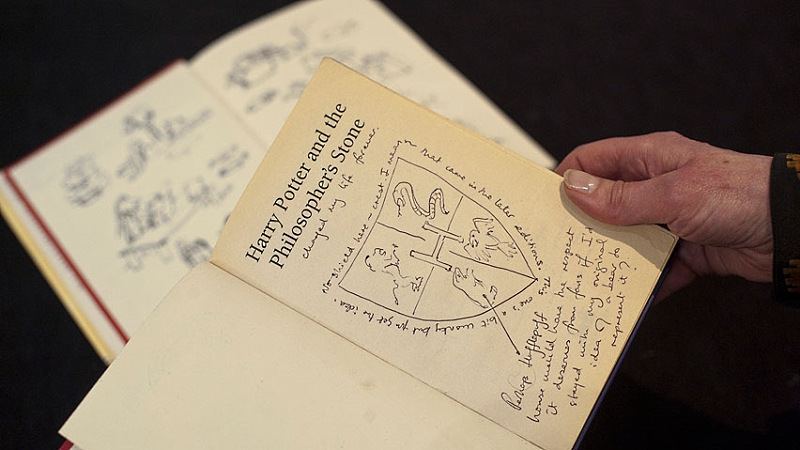 Harry Potter and the
Philosopher's Stone
changed my life forever.
No shield here – crest I mean – that came in the later editions. This one's a bit wonky but you get the idea!
H
Perhaps Hufflepuff
house would have the respect
it deserves from fans if I'd
stayed with my original
idea of a bear to
represent it?